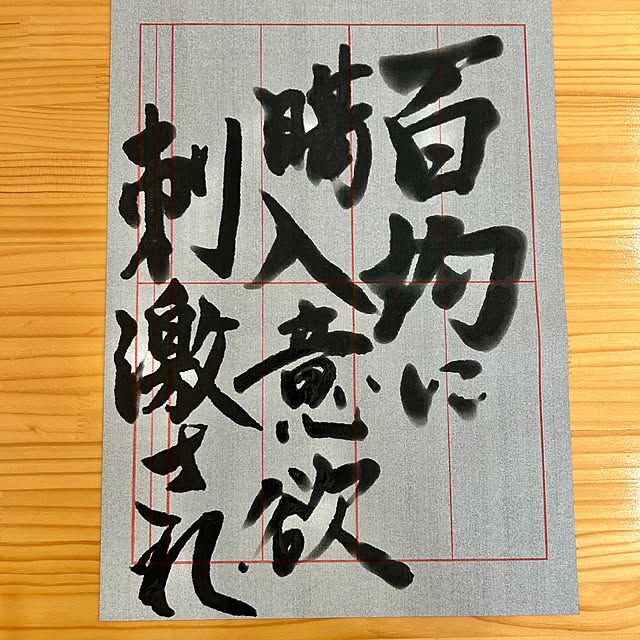 百均に
購入意欲
刺激され